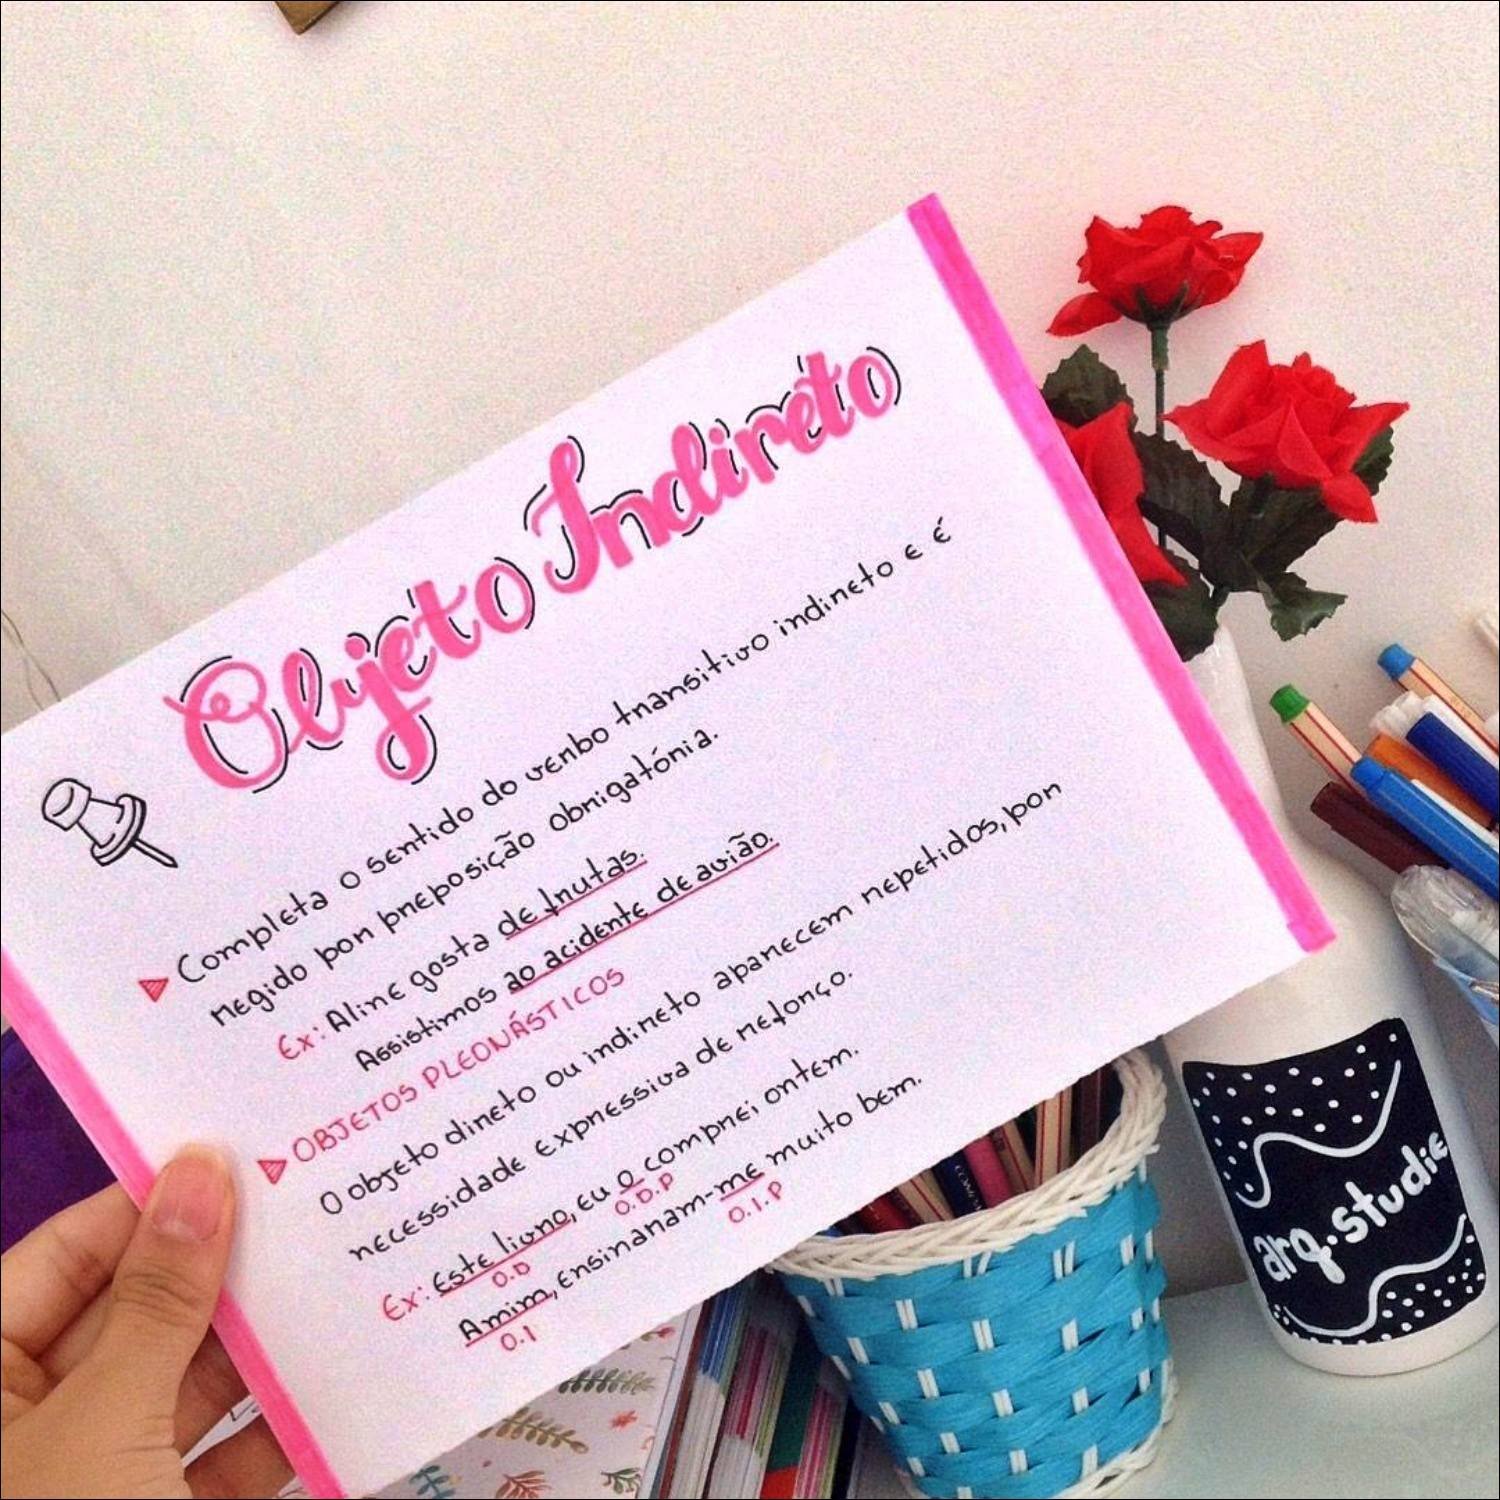 Objeto Indireto
Completa o sentido do verbo transitivo indireto e é
regido por preposição obrigatória.
Ex: Aline gosta de frutas.
Assistimos ao acidente de avião.
OBJETOS PLEONÁSTICOS
O objeto direto ou indireto aparecem repetidos, por
necessidade expressiva de reforço.
Ex: Este livro, eu o comprei ontem.
O.D O.D.P
A mim, ensinaram-me muito bem.
O.I O.I.P
arq.studie